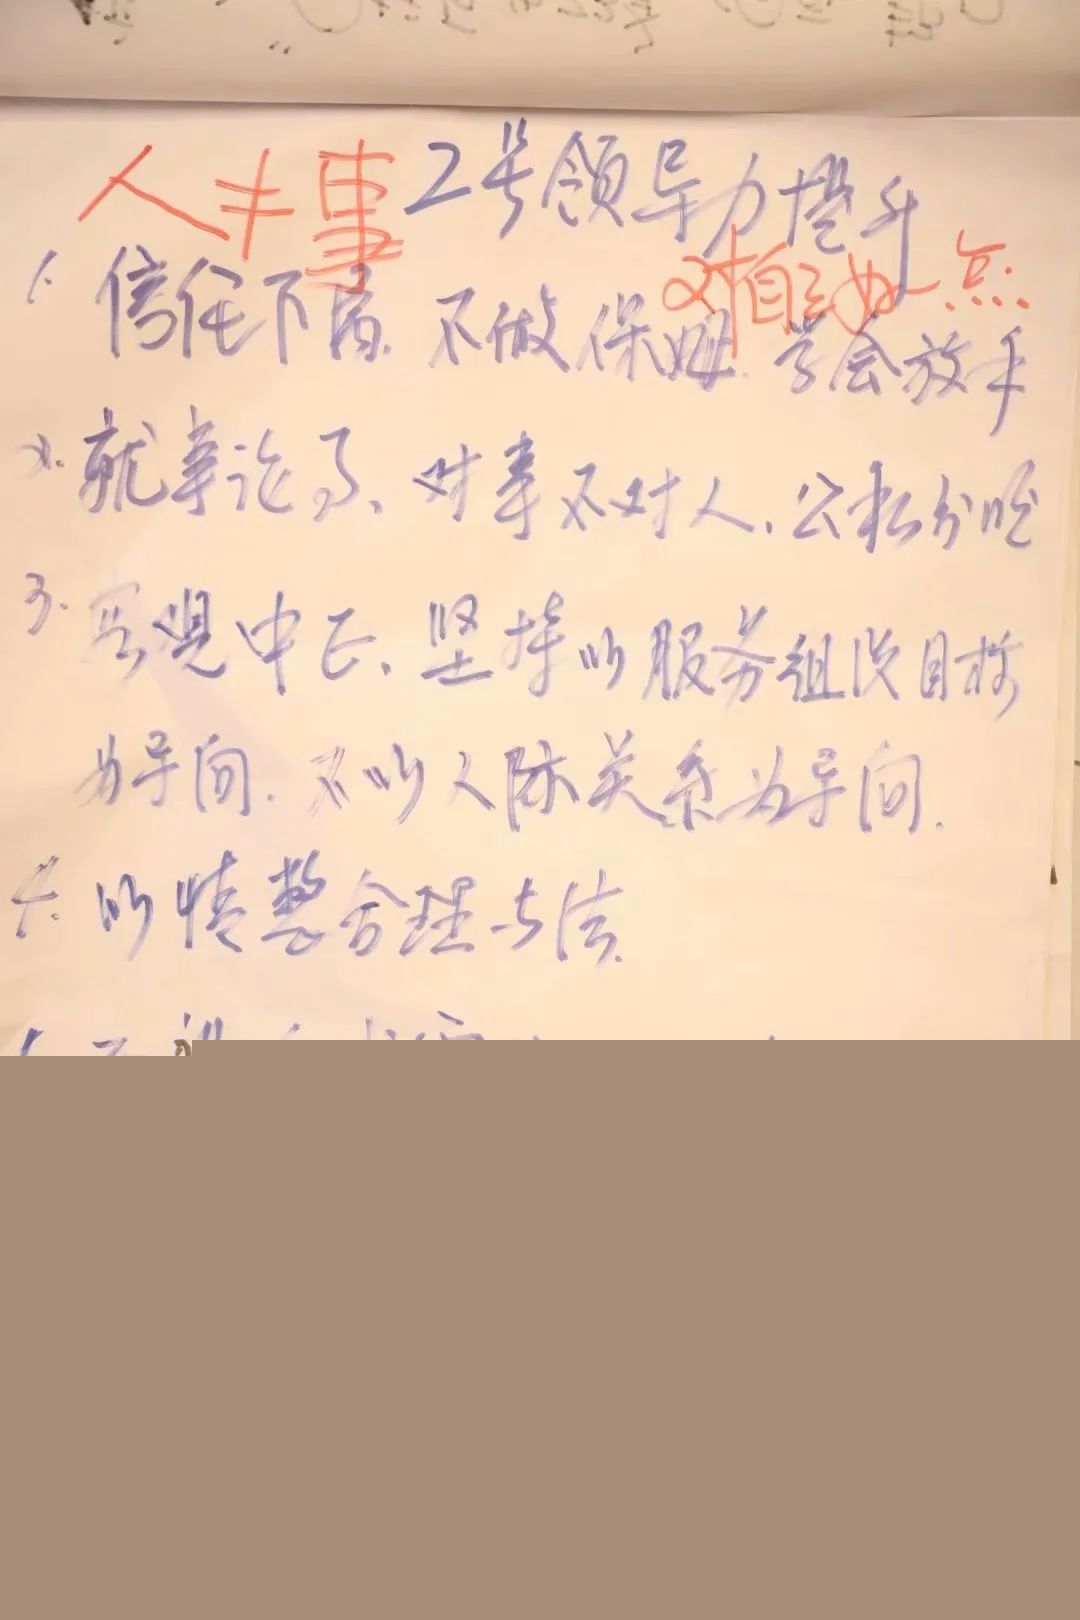 人≠事 2号领导力提升
对自己好一点
1. 信任下属. 不做保姆. 学会放手
2. 就事论事、对事不对人、公私分明
3. 客观中正、坚持以服务组织目标
为导向. 不以人际关系为导向.
4. 以情整合理与法.